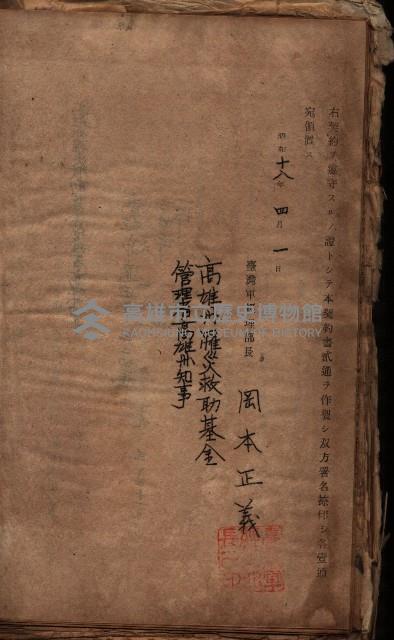 右契約ヲ遵守スルノ證トシテ本契約書貳通ヲ作製シ双方署名捺印シ各壹通
宛領置ス
昭和十八年四月一日
臺灣軍經理部長 岡本正義
高雄州罹災救助基金
管理者高雄州知事
高雄市立歷史博物館
KAOHSIUNG MUSEUM OF HISTORY